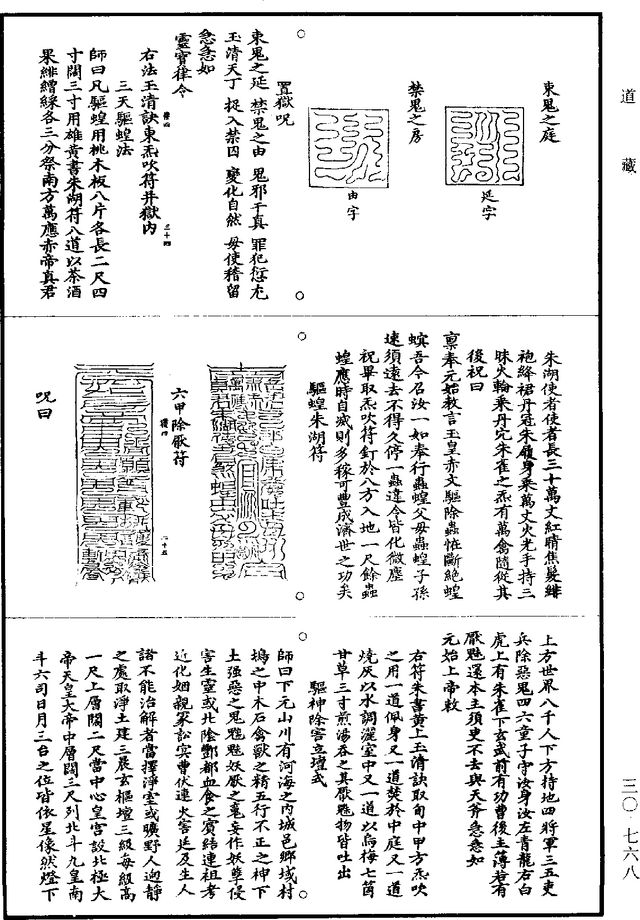 道藏
三〇·七六八
東鬼之庭
延字
禁鬼之房
由字
置獄呪
東鬼之延 禁鬼之由 鬼邪干真 罪犯愆尤
玉清天丁 捉入禁囚 變化自然 毋使稽留
急急如
靈寶律令
右法玉清訣東炁吹符井獄内
三天驅蝗法
師曰凡驅蝗用桃木板八片各長二尺四
寸闊三寸用雄黃書朱湖符八道以茶酒
果緋繒綵各三分祭南方萬應赤帝真君
朱湖使者使者長三十萬丈紅睛焦髮緋
袍絳裙丹冠朱履身乘萬丈火光手持三
昧火輪乘丹穴朱雀之炁有萬禽隨從其
後祝曰
禀奉元始教言玉皇赤文驅除蟲怪斷絶蝗
螟吾今召汝一如奉行蟲蝗父母蟲蝗子孫
速須遠去不得久停一蟲違令皆化微塵
祝畢取炁吹符釘於八方入地一尺餘蟲
蝗應時自滅則多稼可豐成濟世之功矣
驅蝗朱湖符
六甲除厭符
呪曰
上方世界八千人下方持地四將軍三五吏
兵除惡鬼四六童子守汝身汝左青龍右白
虎上有朱雀下玄武前有功曹後主簿若有
厭魅還本主須臾不去與天斧急急如
元始上帝敕
右符朱書黃上玉清訣取旬中甲方炁吹
之用一道佩身又一道焚於中庭又一道
燒灰以水調灑室中又一道以烏梅七箇
甘草三寸煎湯吞之其厭魅物皆吐出
驅神除害立壇式
師曰下元山川有河海之内城邑鄉域村
塢之中木石禽獸之精五行不正之神下
土强惡之鬼魈魅妖厭之鬼妄作妖孽侵
害生靈或北陰酆都血食之賓結連祖考
近化姻親冢訟寃曹伏連火害延及生人
諸不能治解者當擇淨室或曠野人迹靜
之處取淨土建三晨玄樞壇三級每級高
一尺上層闊二尺當中心皇宫設北極大
帝天皇大帝中層闊三尺列北斗九皇南
斗六司日月三台之位皆依星像然燈下